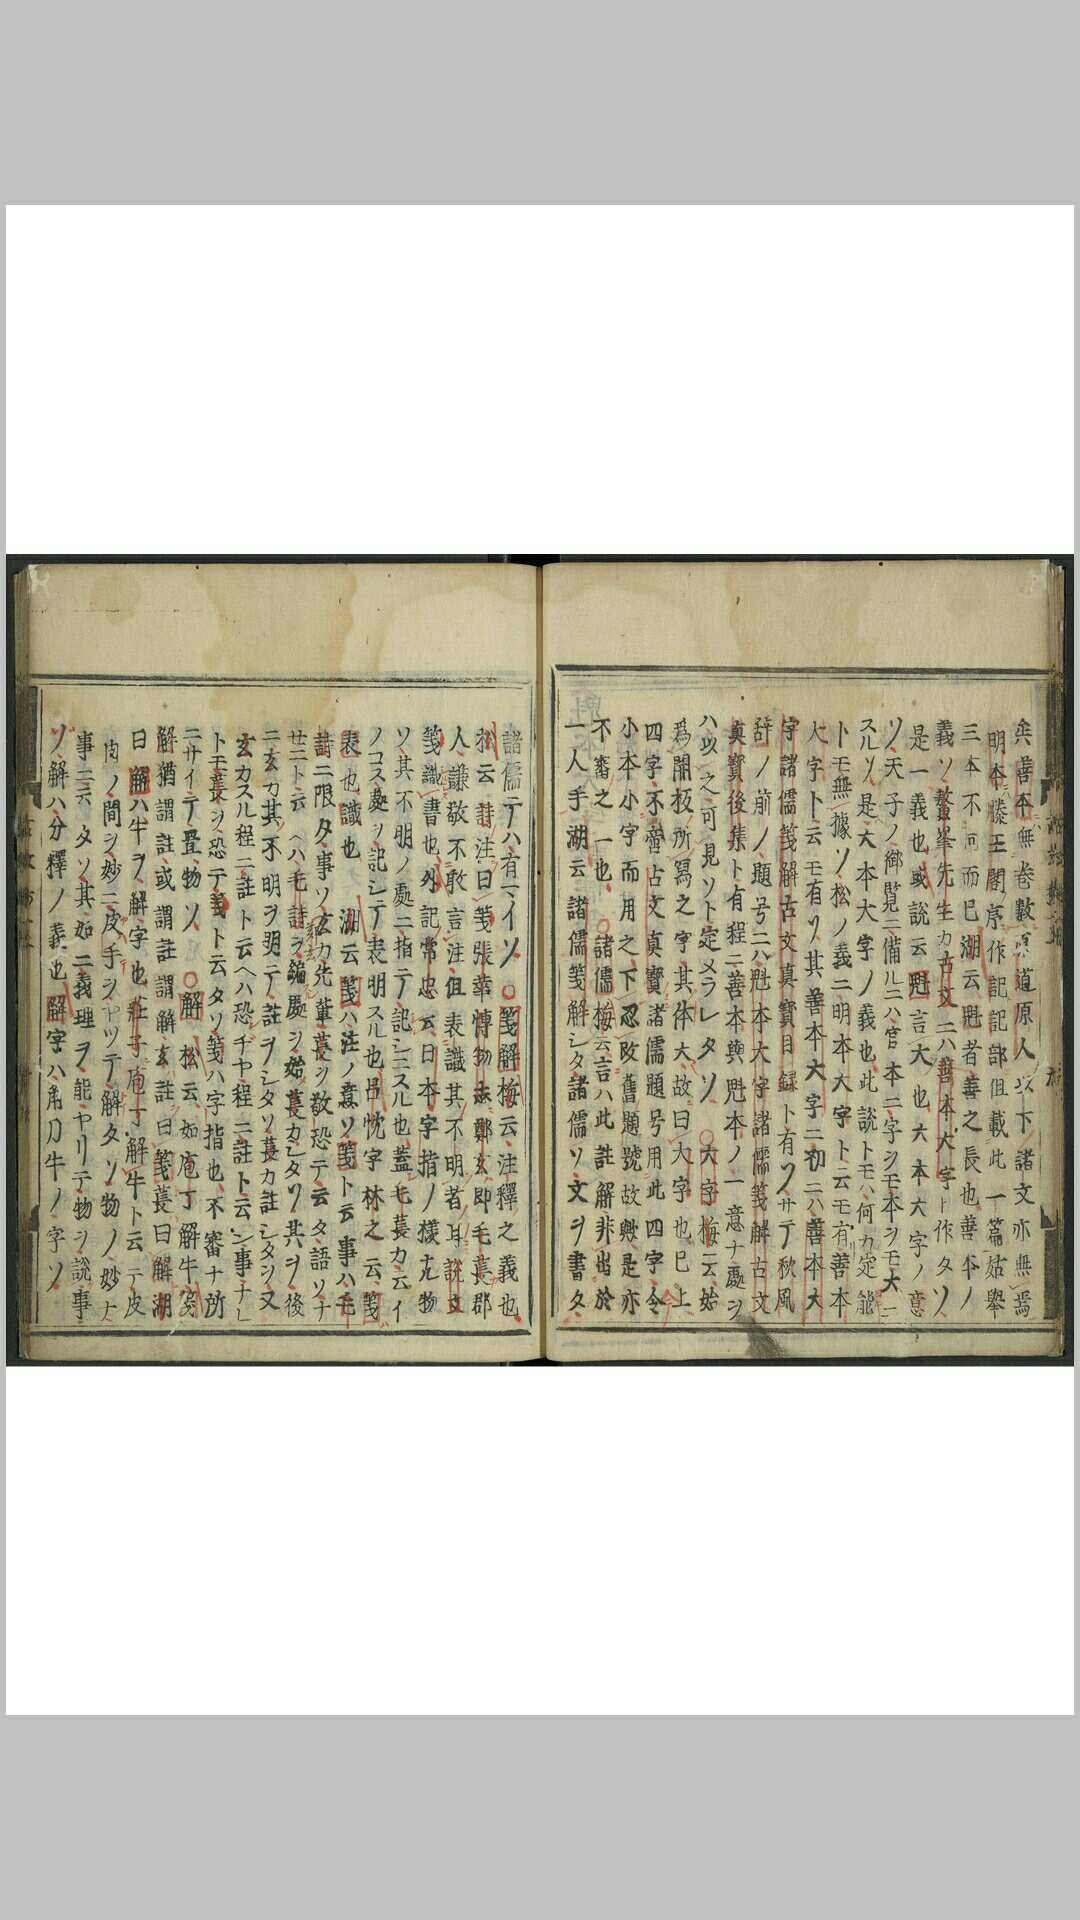 矣善本無卷數京道原人以下諸文亦無焉
明本滕王閣序作記記部但載此一篇姑舉
三本不同而已湖云魁者善之長也善本ノ
義ソ鰲峯先生カ古文ニハ善本大字ト作タソ
是一義也或說云魁言大也六本大字ノ意
ソ天子ノ御覧ニ備ルニハ官本ニ字シモ本シモ大ニ
スルソ是大本大字ノ義也此說トモハ何カ定能
トモ無據ソ松ノ義ニ明本大字ト云モ有善本
大字ト云モ有リ其善本大字ニ初ニハ善本大
字諸儒箋解古文真寳目録ト有ソサテ秋風
辞ノ前ノ題号ニハ魁本大字諸儒箋解古文
真寳後集ト有程ニ善本與魁本ノ一意ナ處ヲ
ハ以之可見ソト定メラレタソ○大字梅云始
爲開板所寫之字其体大故曰大字也已上
四字不啻占文真寳諸儒題号用此四字今
小本小字而用之下忍改舊題號故歟是亦
不審之一也○諸儒梅云言ハ此註解非出於
一人手湖云諸儒箋解シタ諸儒ソ文ヲ書タ
諸儒テハ有マイソ○箋解梅云注釋之義也
松云詩注曰箋張華博物志鄭玄即毛萇郡
人謙敬不敢言注但表識其不明者耳說文
箋識書也列記常忠云日本字指ノ様ナ物
ソ其不明ノ處ニ指ニテ記シニスル也蓋毛萇カ云イ
ノコス處ヲ記シテ表明スル也呂忱字林之云箋
表也識也湖云箋ハ注ノ意ソ箋ト云事ハ毛
詩ニ限タ事ソ玄カ先輩萇ヲ敬恐テ云タ語ソナ
ゼニト云ヘハ毛詩ヲ鄭處シ始萇カシタソ其ヲ後
ニ玄カ其不明ヲ明テ註ヲシタソ萇カ註シタヲ又
玄カスル程ニ註ト云ヘハ恐チヤ程ニ註ト云シ事ナレ
トモ萇ヲ恐テ箋ト云タソ箋ハ字指也不審ナ所
ニサイテ置物ソ○解松云如庖丁解牛箋
解猶謂註或謂註謂解玄註曰箋萇曰解湖
曰解ハ牛ヲ解字也莊子庖丁解牛ト云テ皮
肉ノ間ヲ妙ニ皮手シヤツテ解タソ物ノ妙ナ
事ニ云タソ其如ニ義理ヲ能ヤリテ物ヲ說事
ソ解ハ分釋ノ義也解字ハ角刀牛ノ字ソ